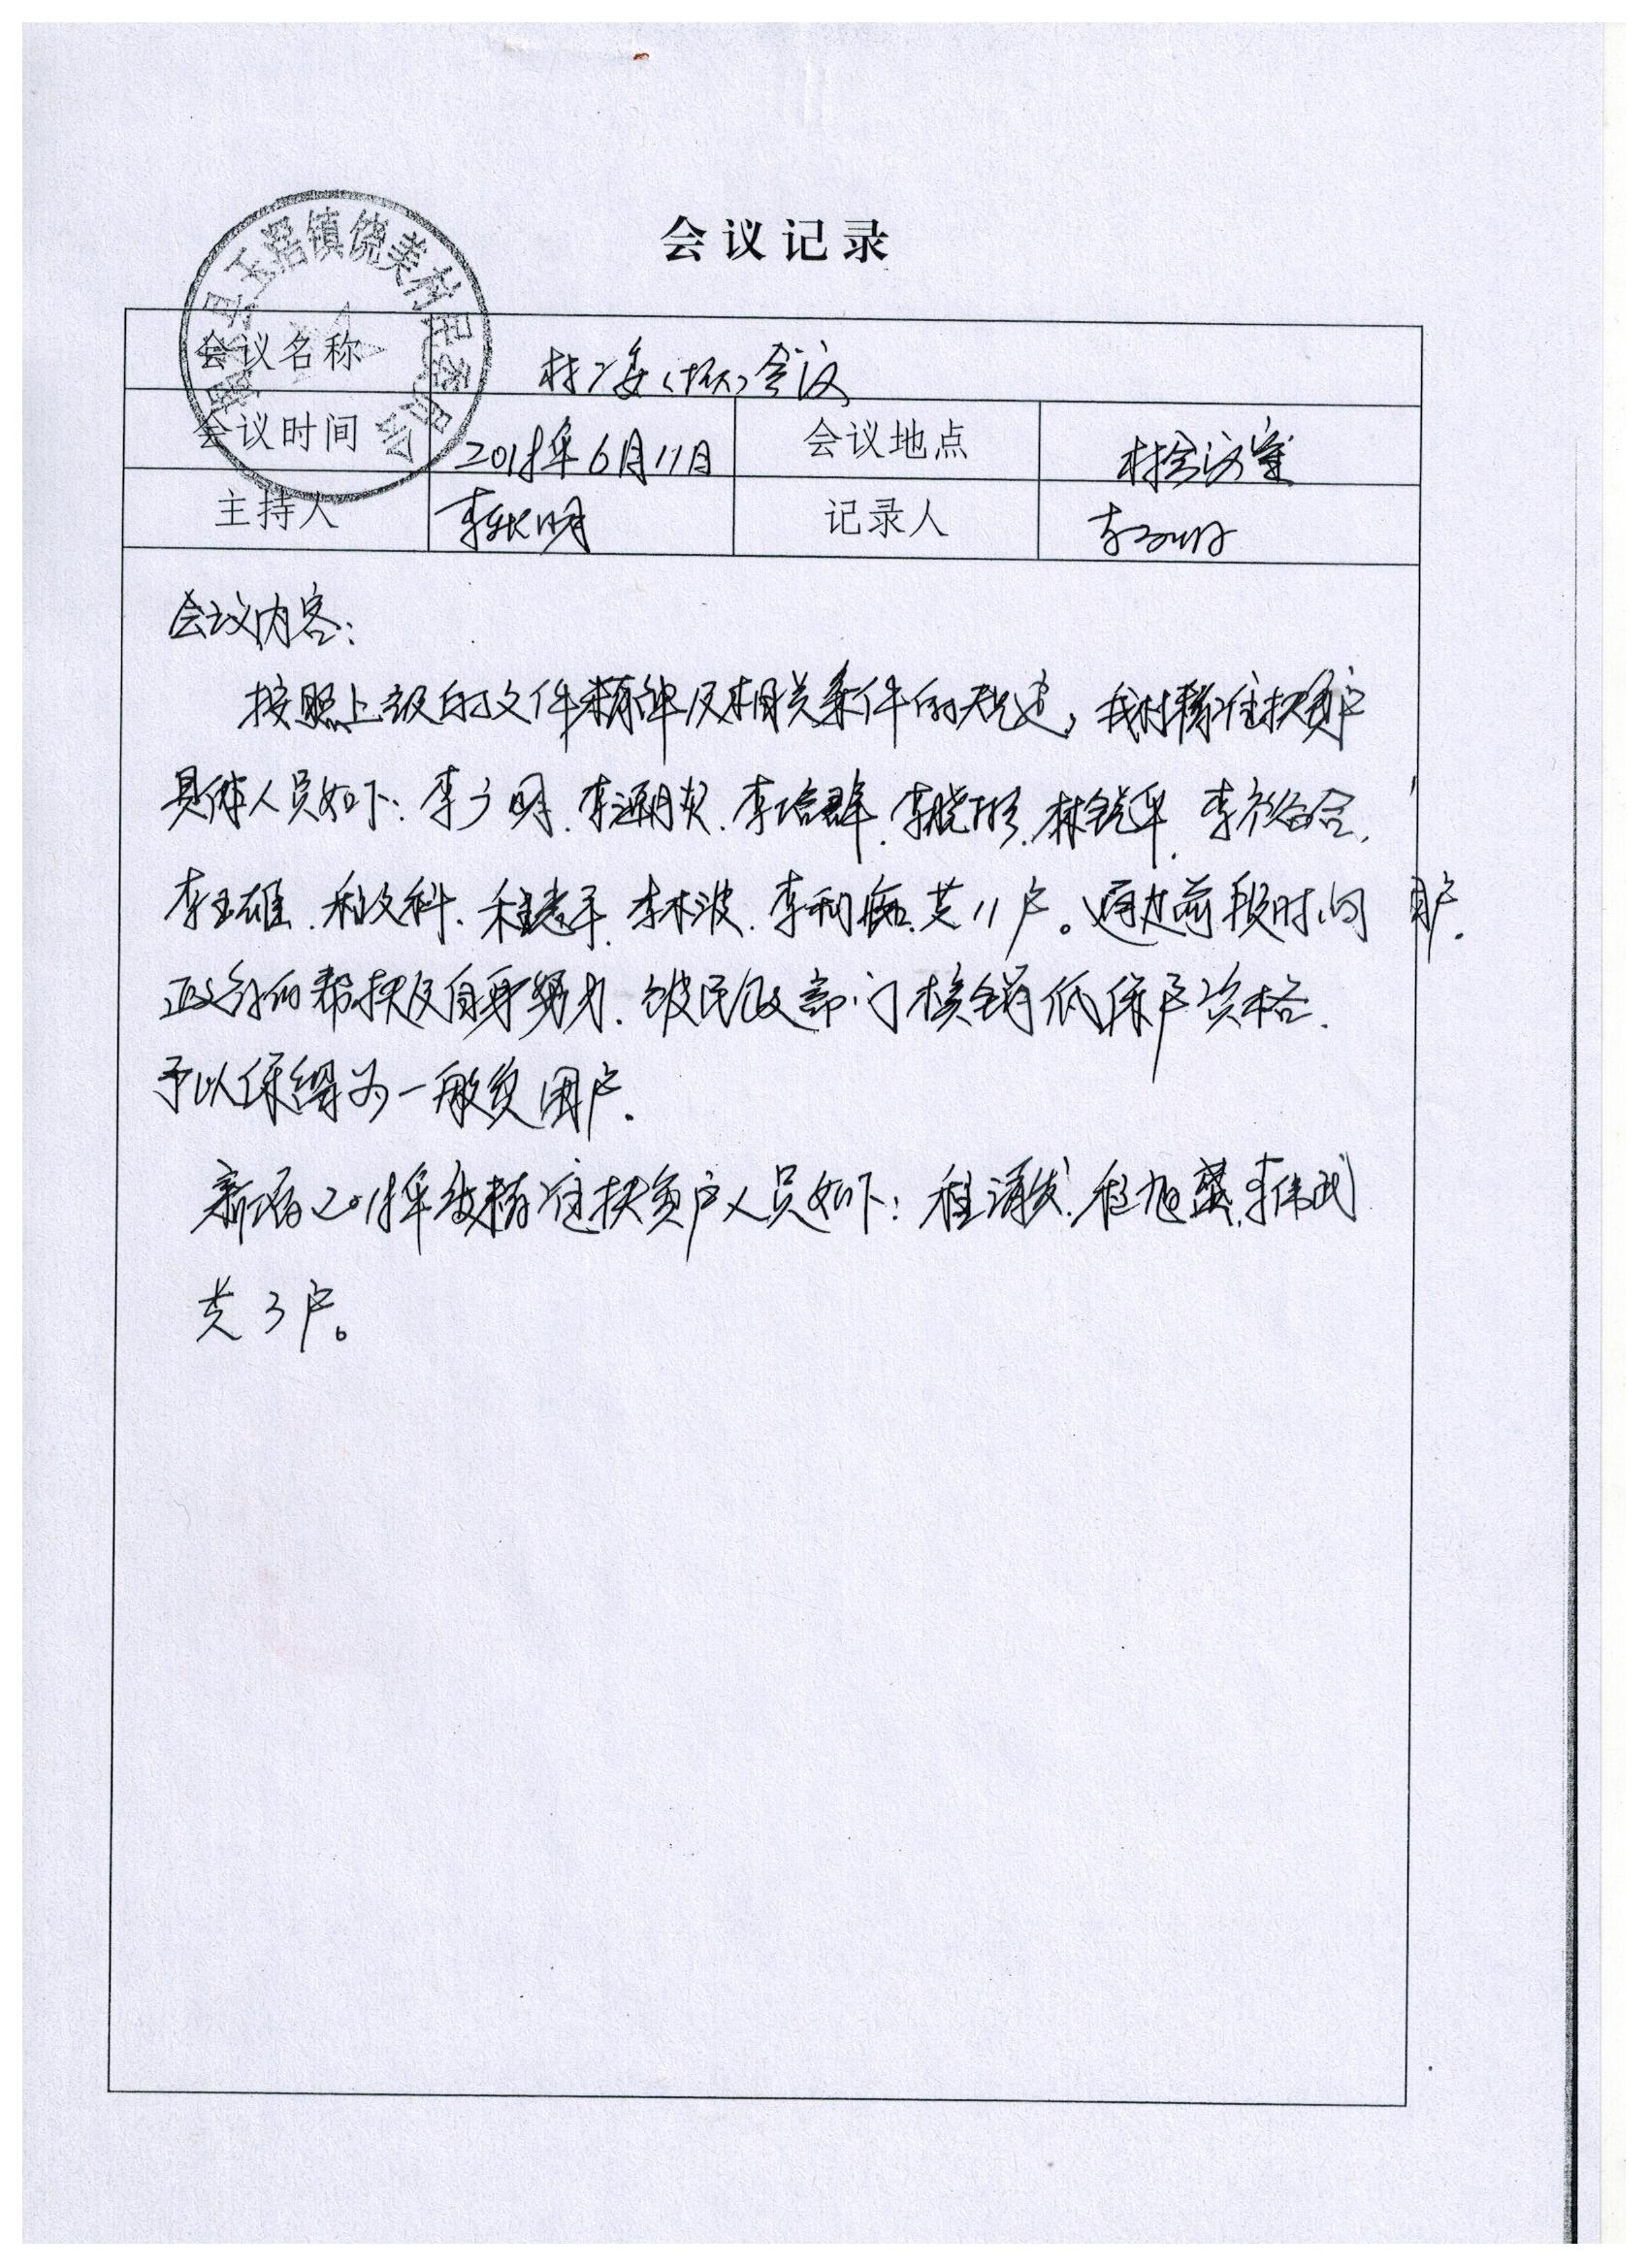 会议记录
县玉湖镇饶美村民委员会
会议名称
村委(扩大)会议
会议时间
2018年6月11日
会议地点
村会议室
主持人
李秋明
记录人
会议内容:
按照上级的文件精神及相关条件的规定,我村精准扶贫户
具体人员如下:李少明.李通贞.李培群.李晓彤.林锐平.李裕合.
李玉雄.程文科.程建平.李木波.李利痴.共11户。通过前段时间
政府的帮扶及自身努力.被民政部门核销低保户资格.
予以保留为一般贫困户.
新增2018年度精准扶贫户人员如下:程清发.程旭.李伟武
共3户。